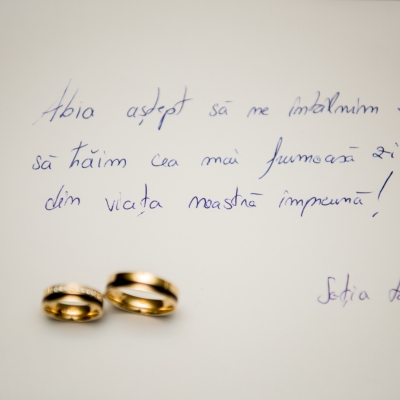 Abia aștept să ne întâlnim
să trăim cea mai frumoasă zi
din viața noastră împreună!
Soția